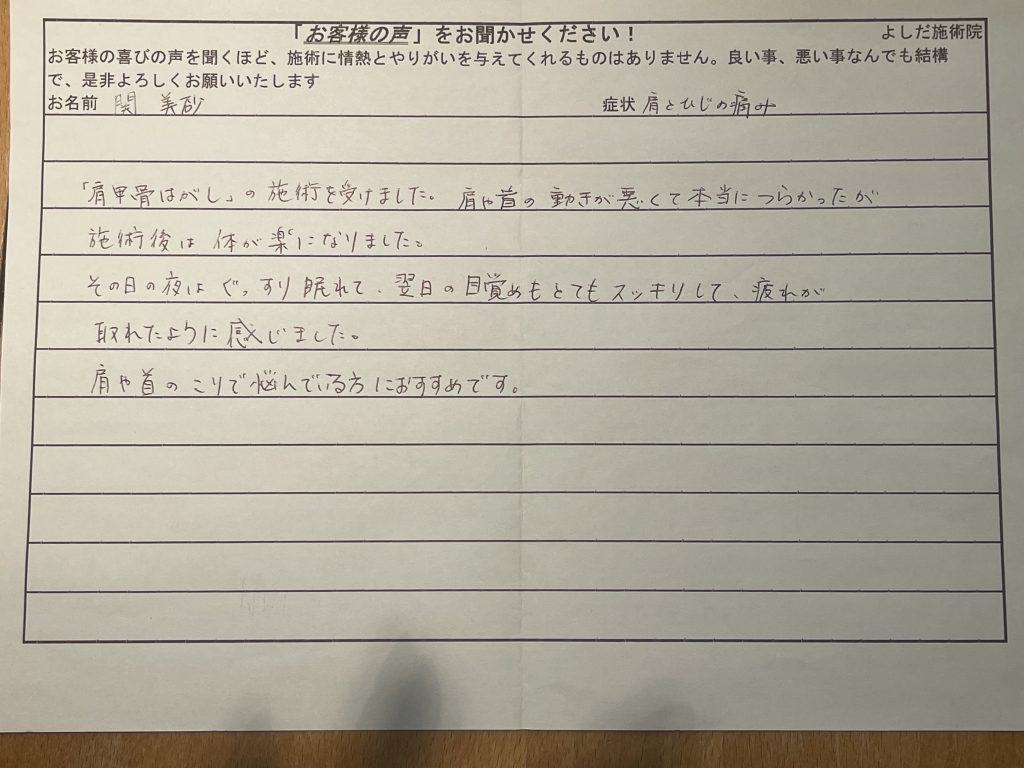 「お客様の声」をお聞かせください！
よしだ施術院
お客様の喜びの声を聞くほど、施術に情熱とやりがいを与えてくれるものはありません。良い事、悪い事なんでも結構
で、是非よろしくお願いいたします
お名前 関 美砂
症状 肩とひじの痛み
「肩甲骨はがし」の施術を受けました。肩や首の動きが悪くて本当につらかったが
施術後は体が楽になりました。
その日の夜はぐっすり眠れて、翌日の目覚めもとてもスッキリして、疲れが
取れたように感じました。
肩や首のこりで悩んでいる方におすすめです。